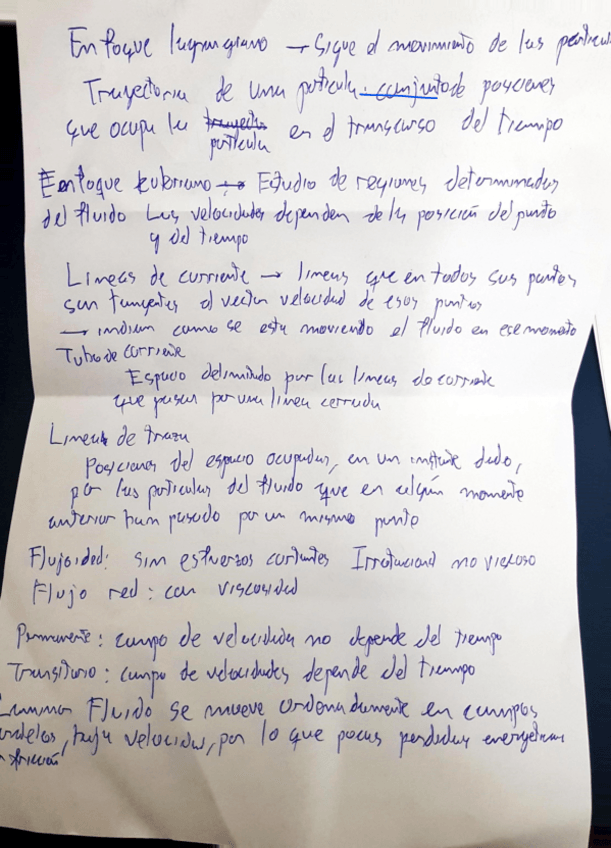 Enfoque lagrangiano → Sigue el movimiento de las partícul
Trayectoria de una partícula: conjunto de posiciones
que ocupa la trayecto en el transcurso del tiempo
partícula
Enfoque Euleriano → Estudio de regiones determinadas
del fluido Las velocidades dependen de la posición del punto
y del tiempo
Líneas de corriente → líneas que en todos sus puntos
son tangentes al vector velocidad de esos puntos
→ indican como se esta moviendo el fluido en ese momento
Tubo de corriente
Espacio delimitado por las líneas de corriente
que pasan por una línea cerrada
Líneas de traza
Posiciones del espacio ocupadas, en un instante dado,
por las partículas del fluido que en algún momento
anterior han pasado por un mismo punto
Flujo ideal: sin esfuerzos cortantes Irrotacional no viscoso
Flujo real: con viscosidad
Permanente: campo de velocidades no depende del tiempo
Transitorio: campo de velocidades depende del tiempo
Laminar Fluido se mueve ordenadamente en campos
ralelos, baja velocidad, por lo que pocas perdidas energéticas
fricción